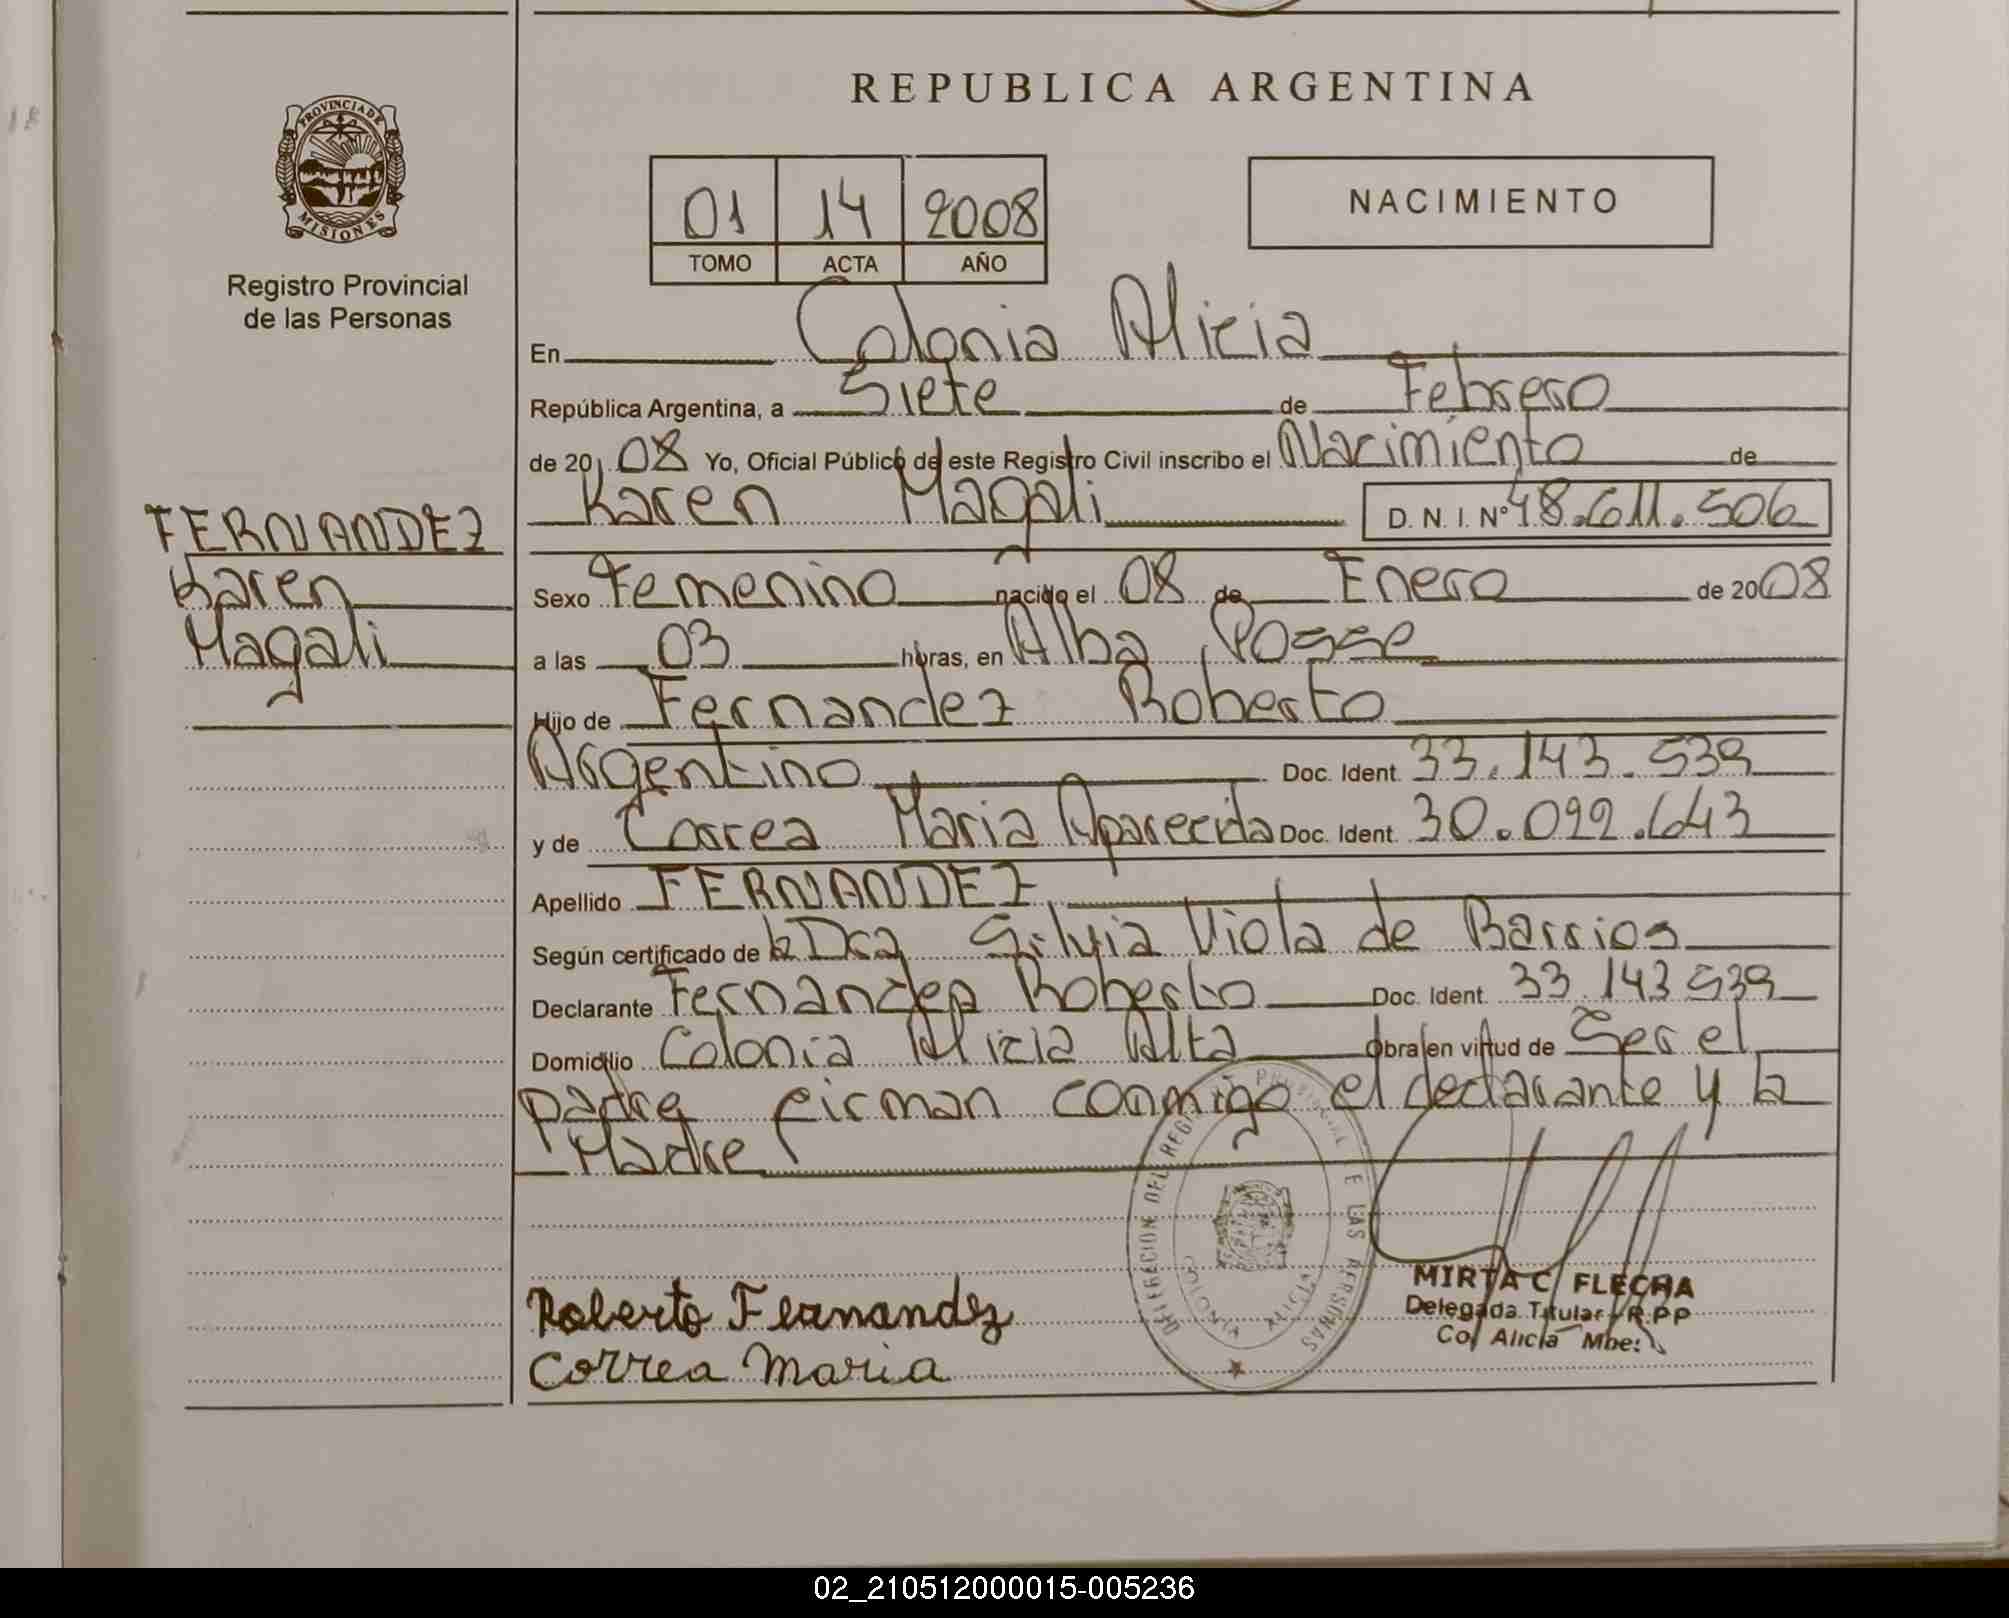 REPUBLICA ARGENTINA
PROVINCIA DE MISIONES
Registro Provincial
de las Personas
01 14 2008
TOMO ACTA AÑO
NACIMIENTO
En Colonia Alicia
República Argentina, a Siete de Febrero
de 20 08 Yo, Oficial Público de este Registro Civil inscribo el Nacimiento de
Karen Magali D. N. I. Nº 48.611.506
FERNANDEZ
Karen
Magali
Sexo Femenino nacido el 08 de Enero de 2008
a las 03 horas, en Alba Posse
Hijo de Fernandez Roberto
Argentino Doc. Ident. 33.143.539
y de Correa Maria Aparecida Doc. Ident. 30.092.643
Apellido FERNANDEZ
Según certificado de la Dra Silvia Viola de Barrios
Declarante Fernandez Roberto Doc. Ident. 33 143 539
Domicilio Colonia Alicia Alta Obra en virtud de Ser el
padre firman conmigo el declarante y la
Madre
DELEGACION DEL REGISTRO PROVINCIAL DE LAS PERSONAS
COLONIA ALICIA
MIRTA C. FLECHA
Delegada Titular R.P.P
Col Alicia
Roberto Fernandez
Correa Maria
02_210512000015-005236